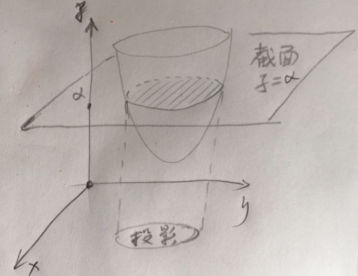 z
α
截面
z=α
y
x
投影